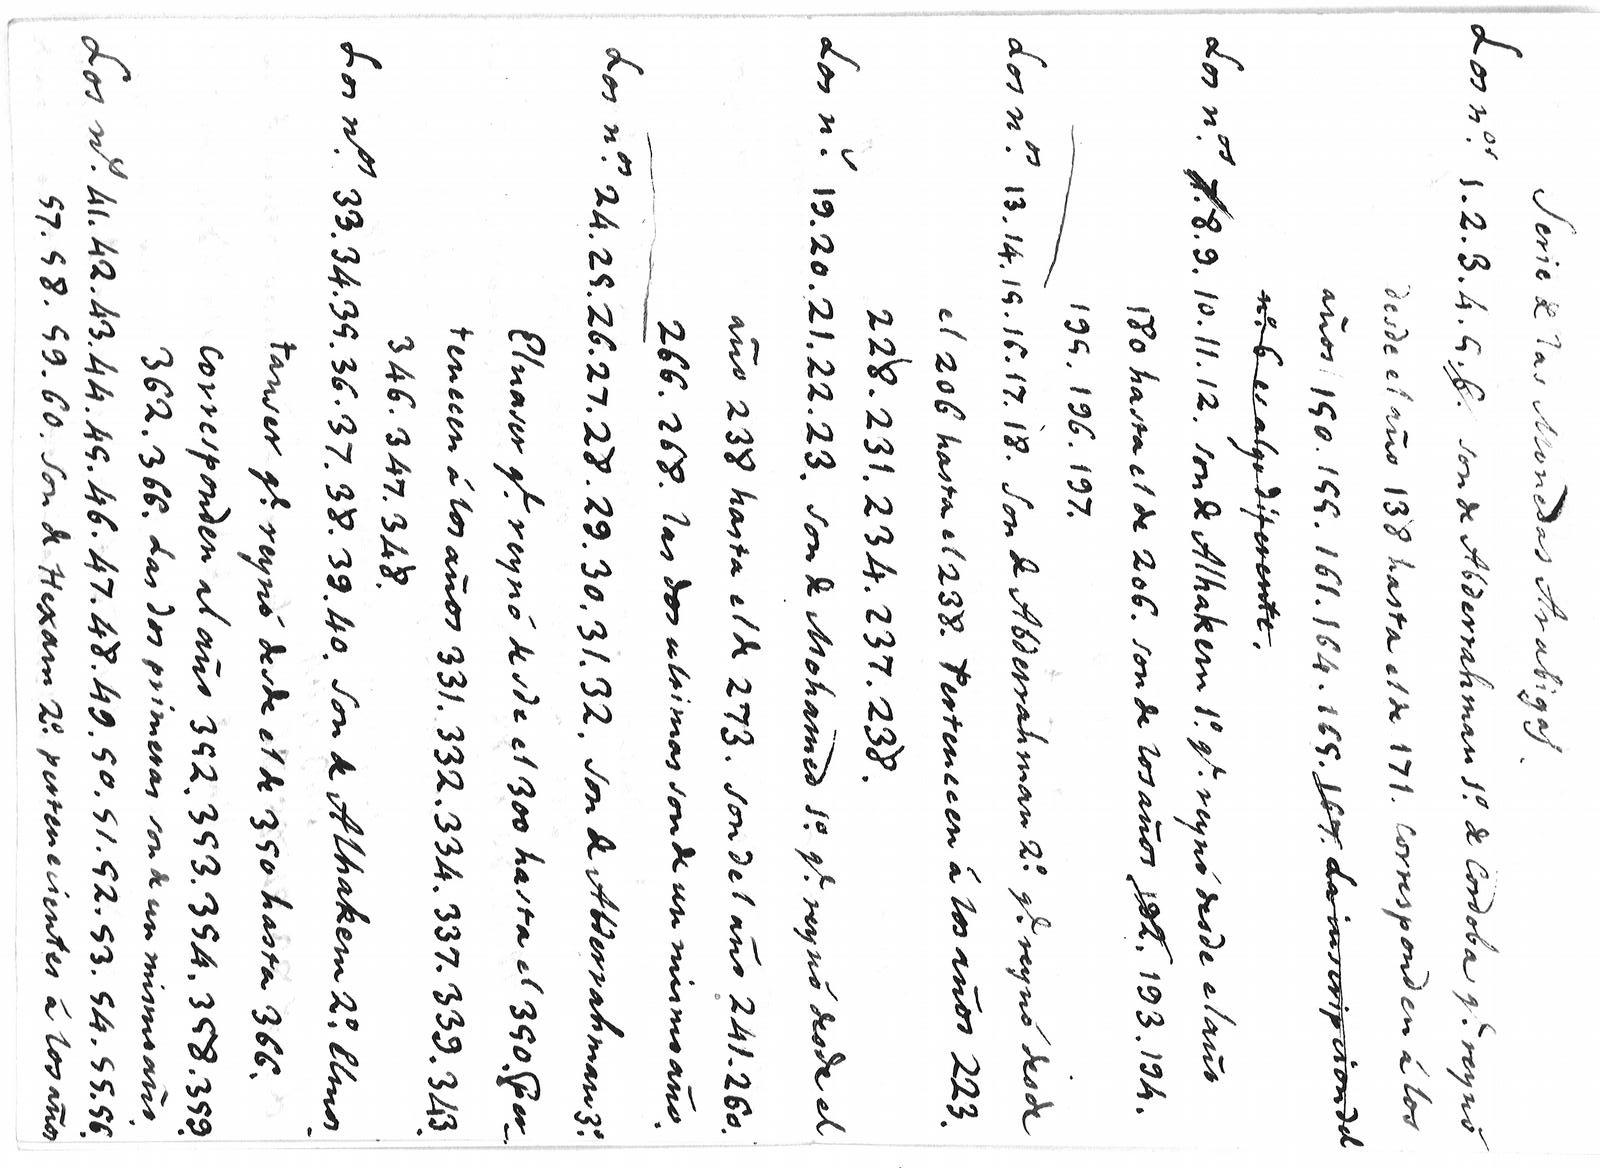 Serie de las Monedas Arabigas.
Los n.os 1. 2. 3. 4. 5. 6. son de Abderrahman 1.º de Cordoba q.e reynó
desde el año 138 hasta el de 171. corresponden á los
años 150. 155. 161. 164. 165. 167. La inscripcion del
n.º 6 es algo diferente.
Los n.os 7. 8. 9. 10. 11. 12. son de Alhakem 1.º q.e reynó desde el año
180 hasta el de 206. son de los años 192. 193. 194.
195. 196. 197.
Los n.os 13. 14. 15. 16. 17. 18. Son de Abderrahman 2.º q.e reynó desde
el 206 hasta el 238. Pertenecen á los años 223.
228. 231. 234. 237. 238.
Los n.s 19. 20. 21. 22. 23. son de Mohamed 1.º q.e reynó desde el
año 238 hasta el de 273. son del año 241. 260.
266. 268. las dos ultimas son de un mismo año.
Los n.os 24. 25. 26. 27. 28. 29. 30. 31. 32. son de Abderrahman 3.º
Elnaser q.e reynó desde el 300 hasta el 350. Per_
tenecen á los años 331. 332. 334. 337. 339. 343
346. 347. 348.
Los n.os 33. 34. 35. 36. 37. 38. 39. 40. son de Alhakem 2.º Elmos_
tanser q.e reynó desde el de 350 hasta 366.
corresponden al año 352. 353. 354. 358. 359.
362. 366. Las dos primeras son de un mismo año.
Los n.os 41. 42. 43. 44. 45. 46. 47. 48. 49. 50. 51. 52. 53. 54. 55. 56.
57. 58. 59. 60. son de Hexam 2.º pertenecientes á los años